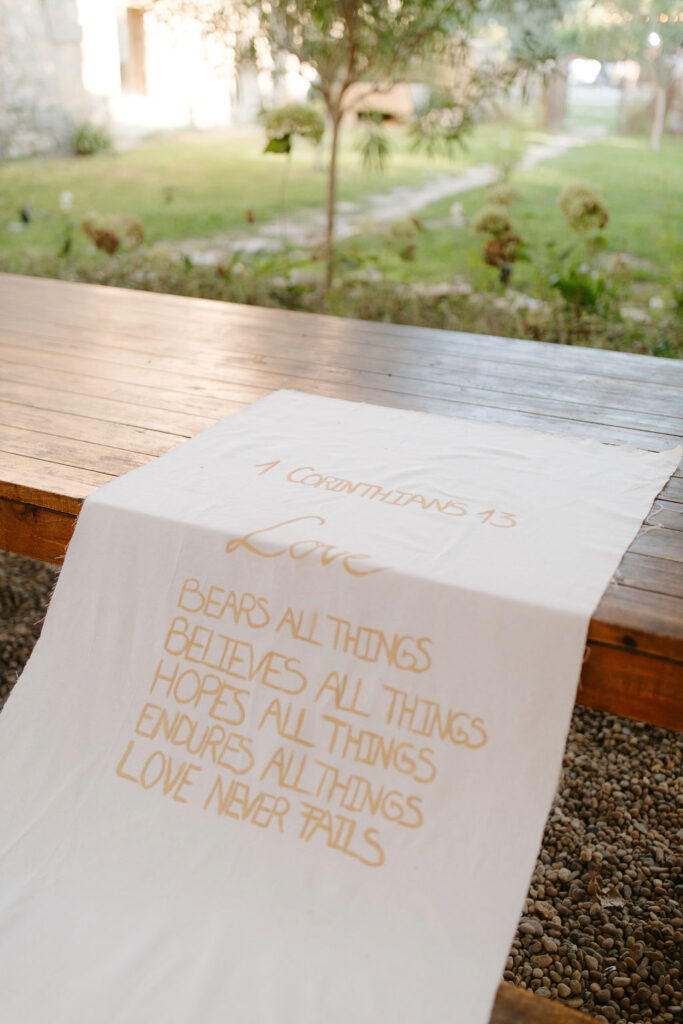 1 CORINTHIANS 13
Love
BEARS ALL THINGS
BELIEVES ALL THINGS
HOPES ALL THINGS
ENDURES ALL THINGS
LOVE NEVER FAILS